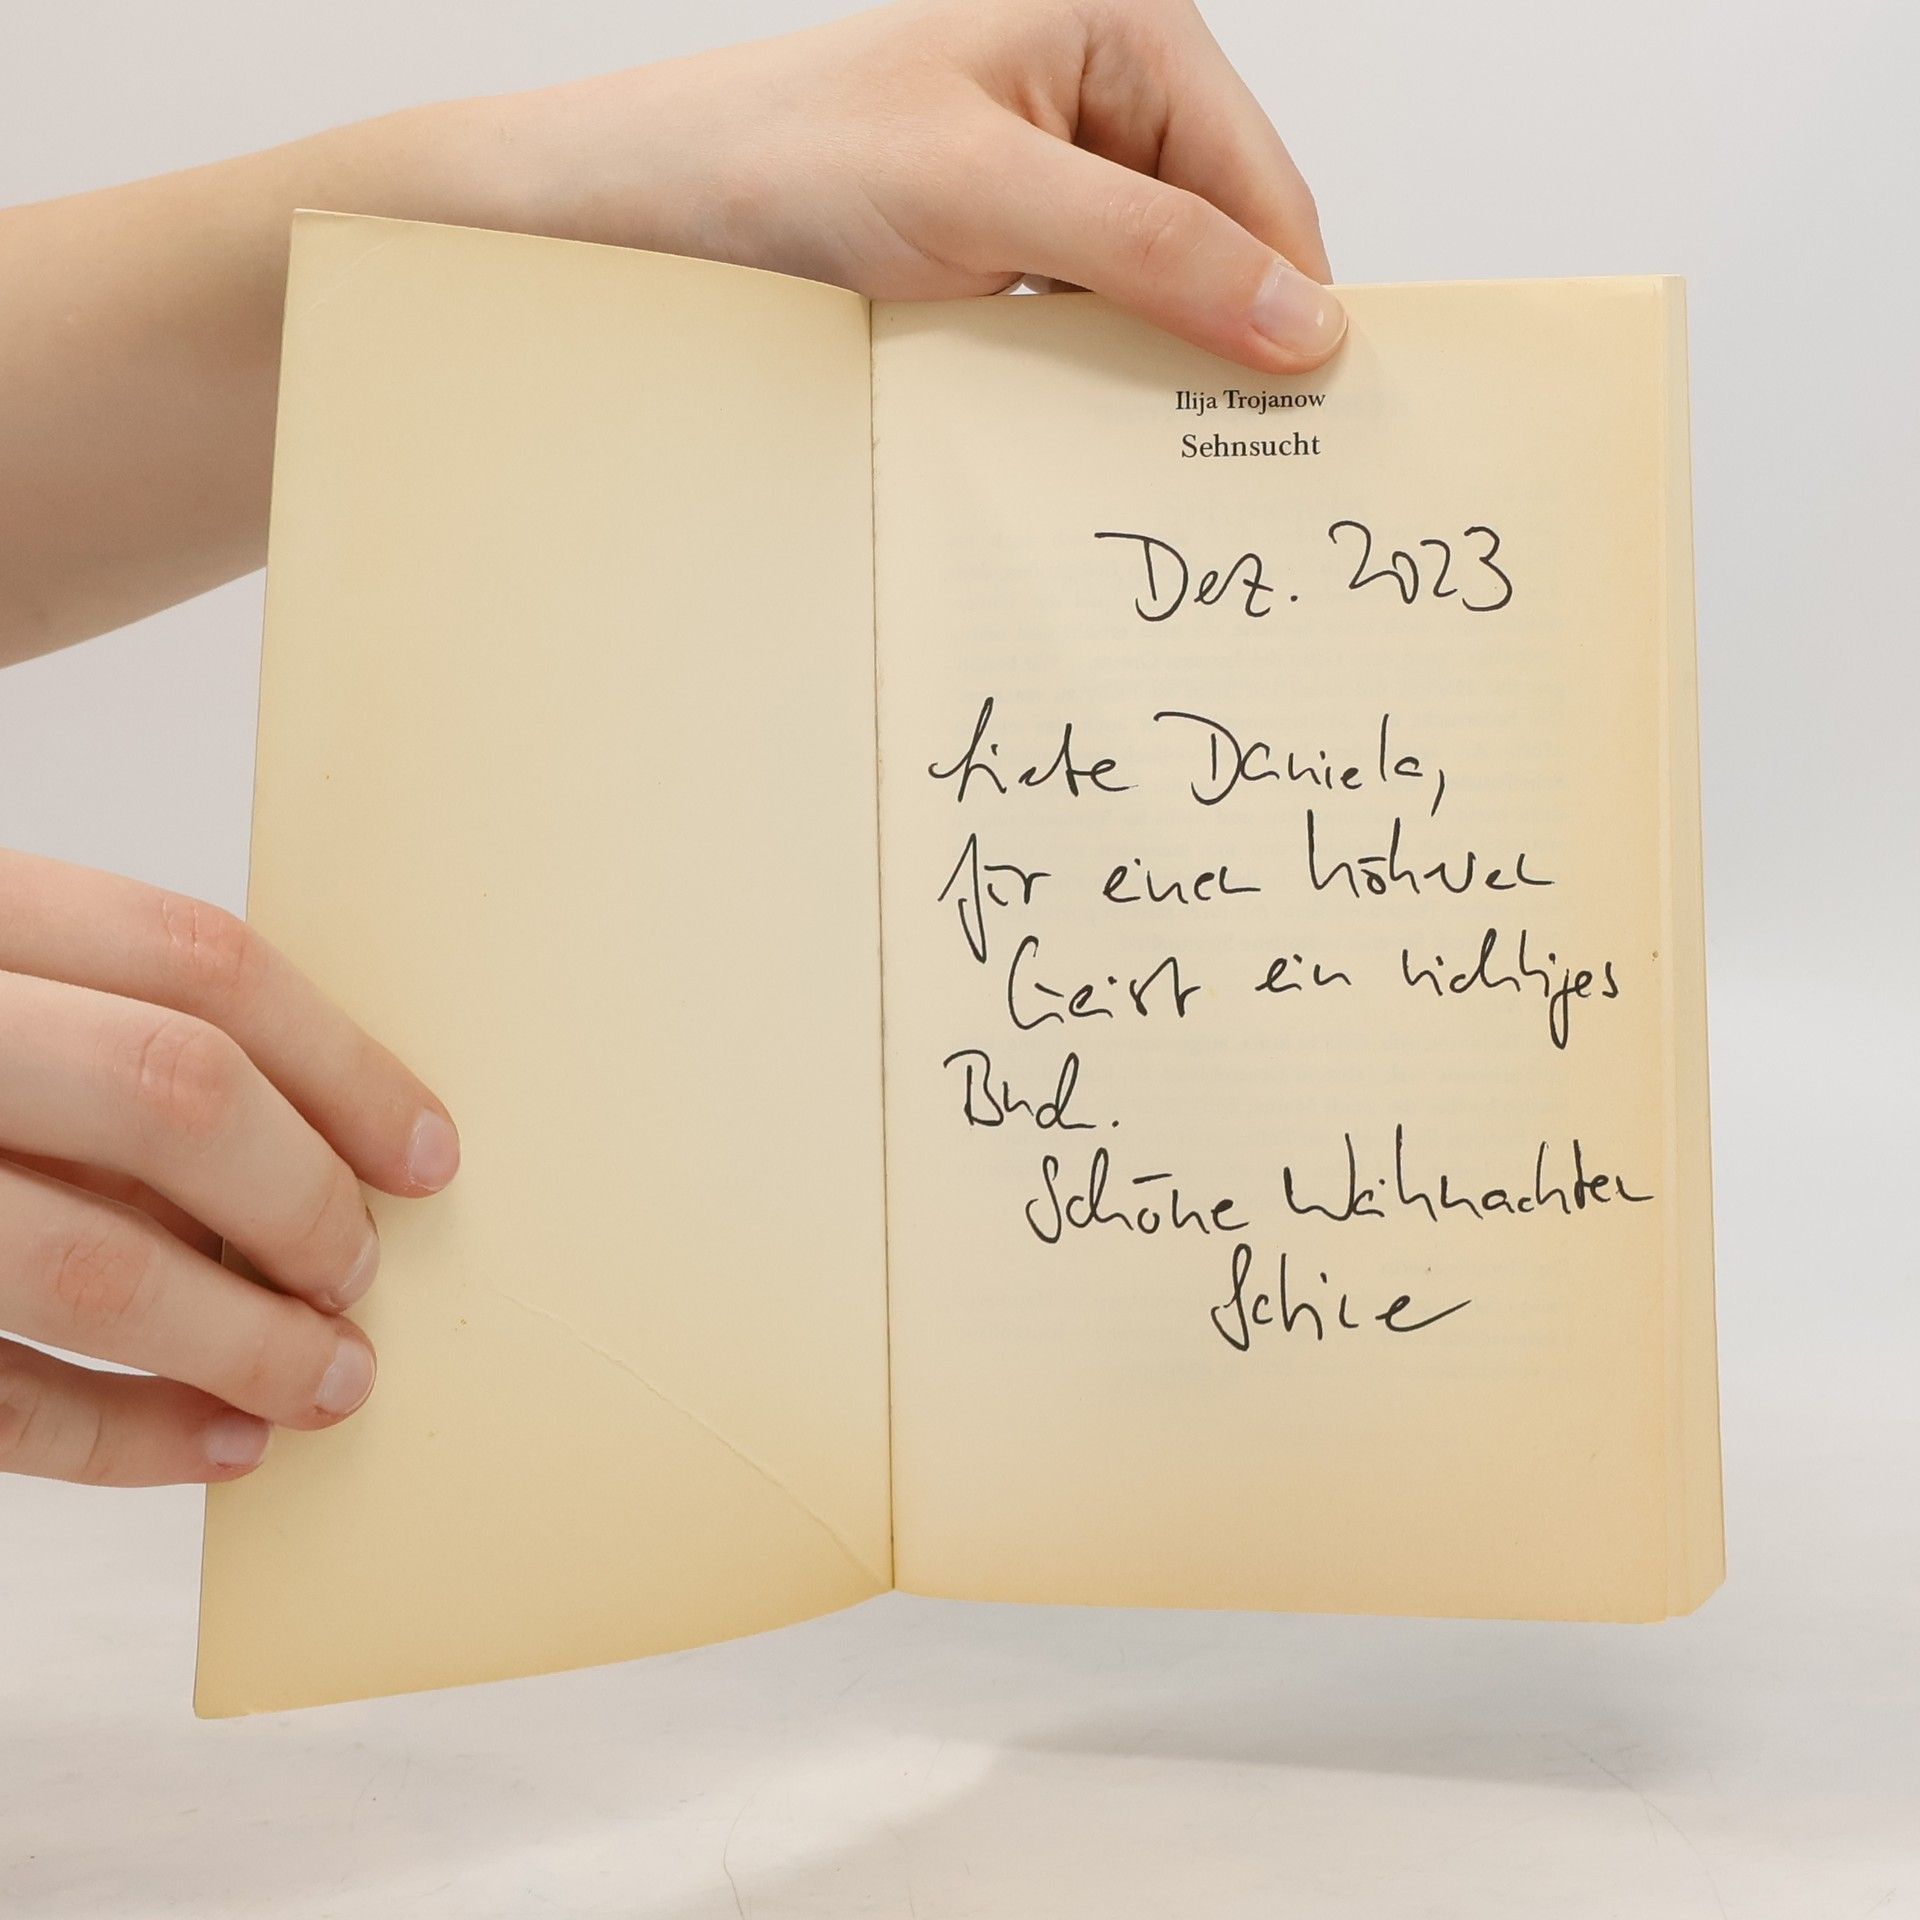 Ilija Trojanow
Sehnsucht
Dez. 2023
Liebe Daniela,
für einen höheren
Geist ein richtiges
Buch.
Schöne Weihnachten